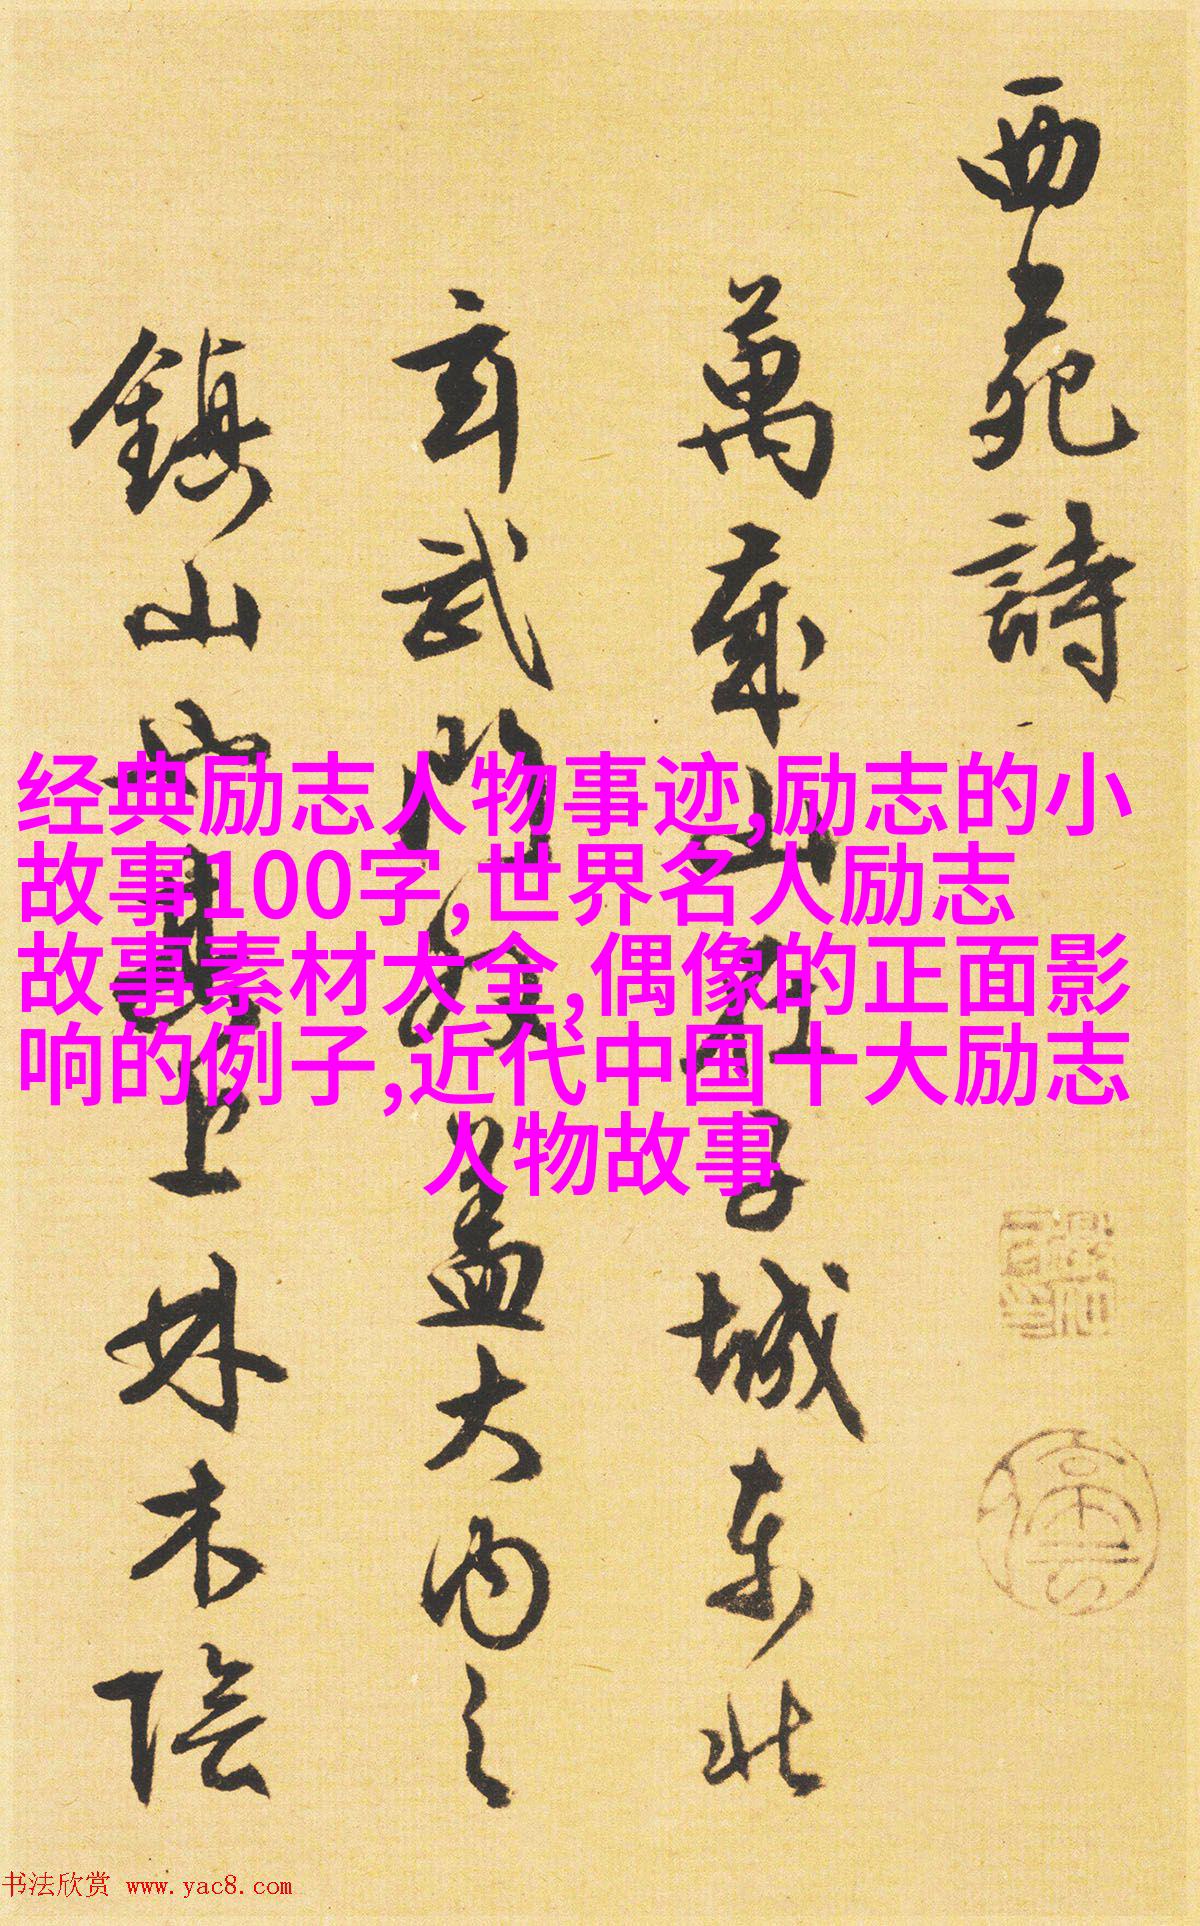 西苑詩
萬歲山在子城東北
玄武門外盖大内之
鎮山也其上林木陰
经典励志人物事迹,励志的小
故事100字,世界名人励志
故事素材大全,偶像的正面影
响的例子,近代中国十大励志
人物故事
书法欣赏 www.yac8.com